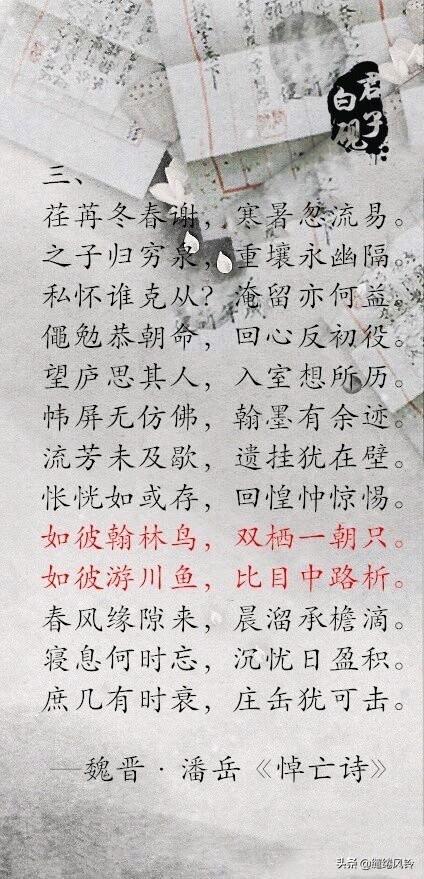 君子
白砚
三、
荏苒冬春谢，寒暑忽流易。
之子归穷泉，重壤永幽隔。
私怀谁克从？淹留亦何益。
僶勉恭朝命，回心反初役。
望庐思其人，入室想所历。
帏屏无仿佛，翰墨有余迹。
流芳未及歇，遗挂犹在壁。
怅恍如或存，回惶忡惊惕。
如彼翰林鸟，双栖一朝只。
如彼游川鱼，比目中路析。
春风缘隙来，晨溜承檐滴。
寝息何时忘，沉忧日盈积。
庶几有时衰，庄岳犹可击。
—魏晋·潘岳《悼亡诗》
头条@缱绻风铃